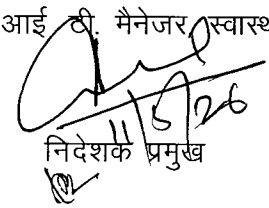 आई टी. मैनेजर, स्वास्थ
11/5/26
निदेशक प्रमुख